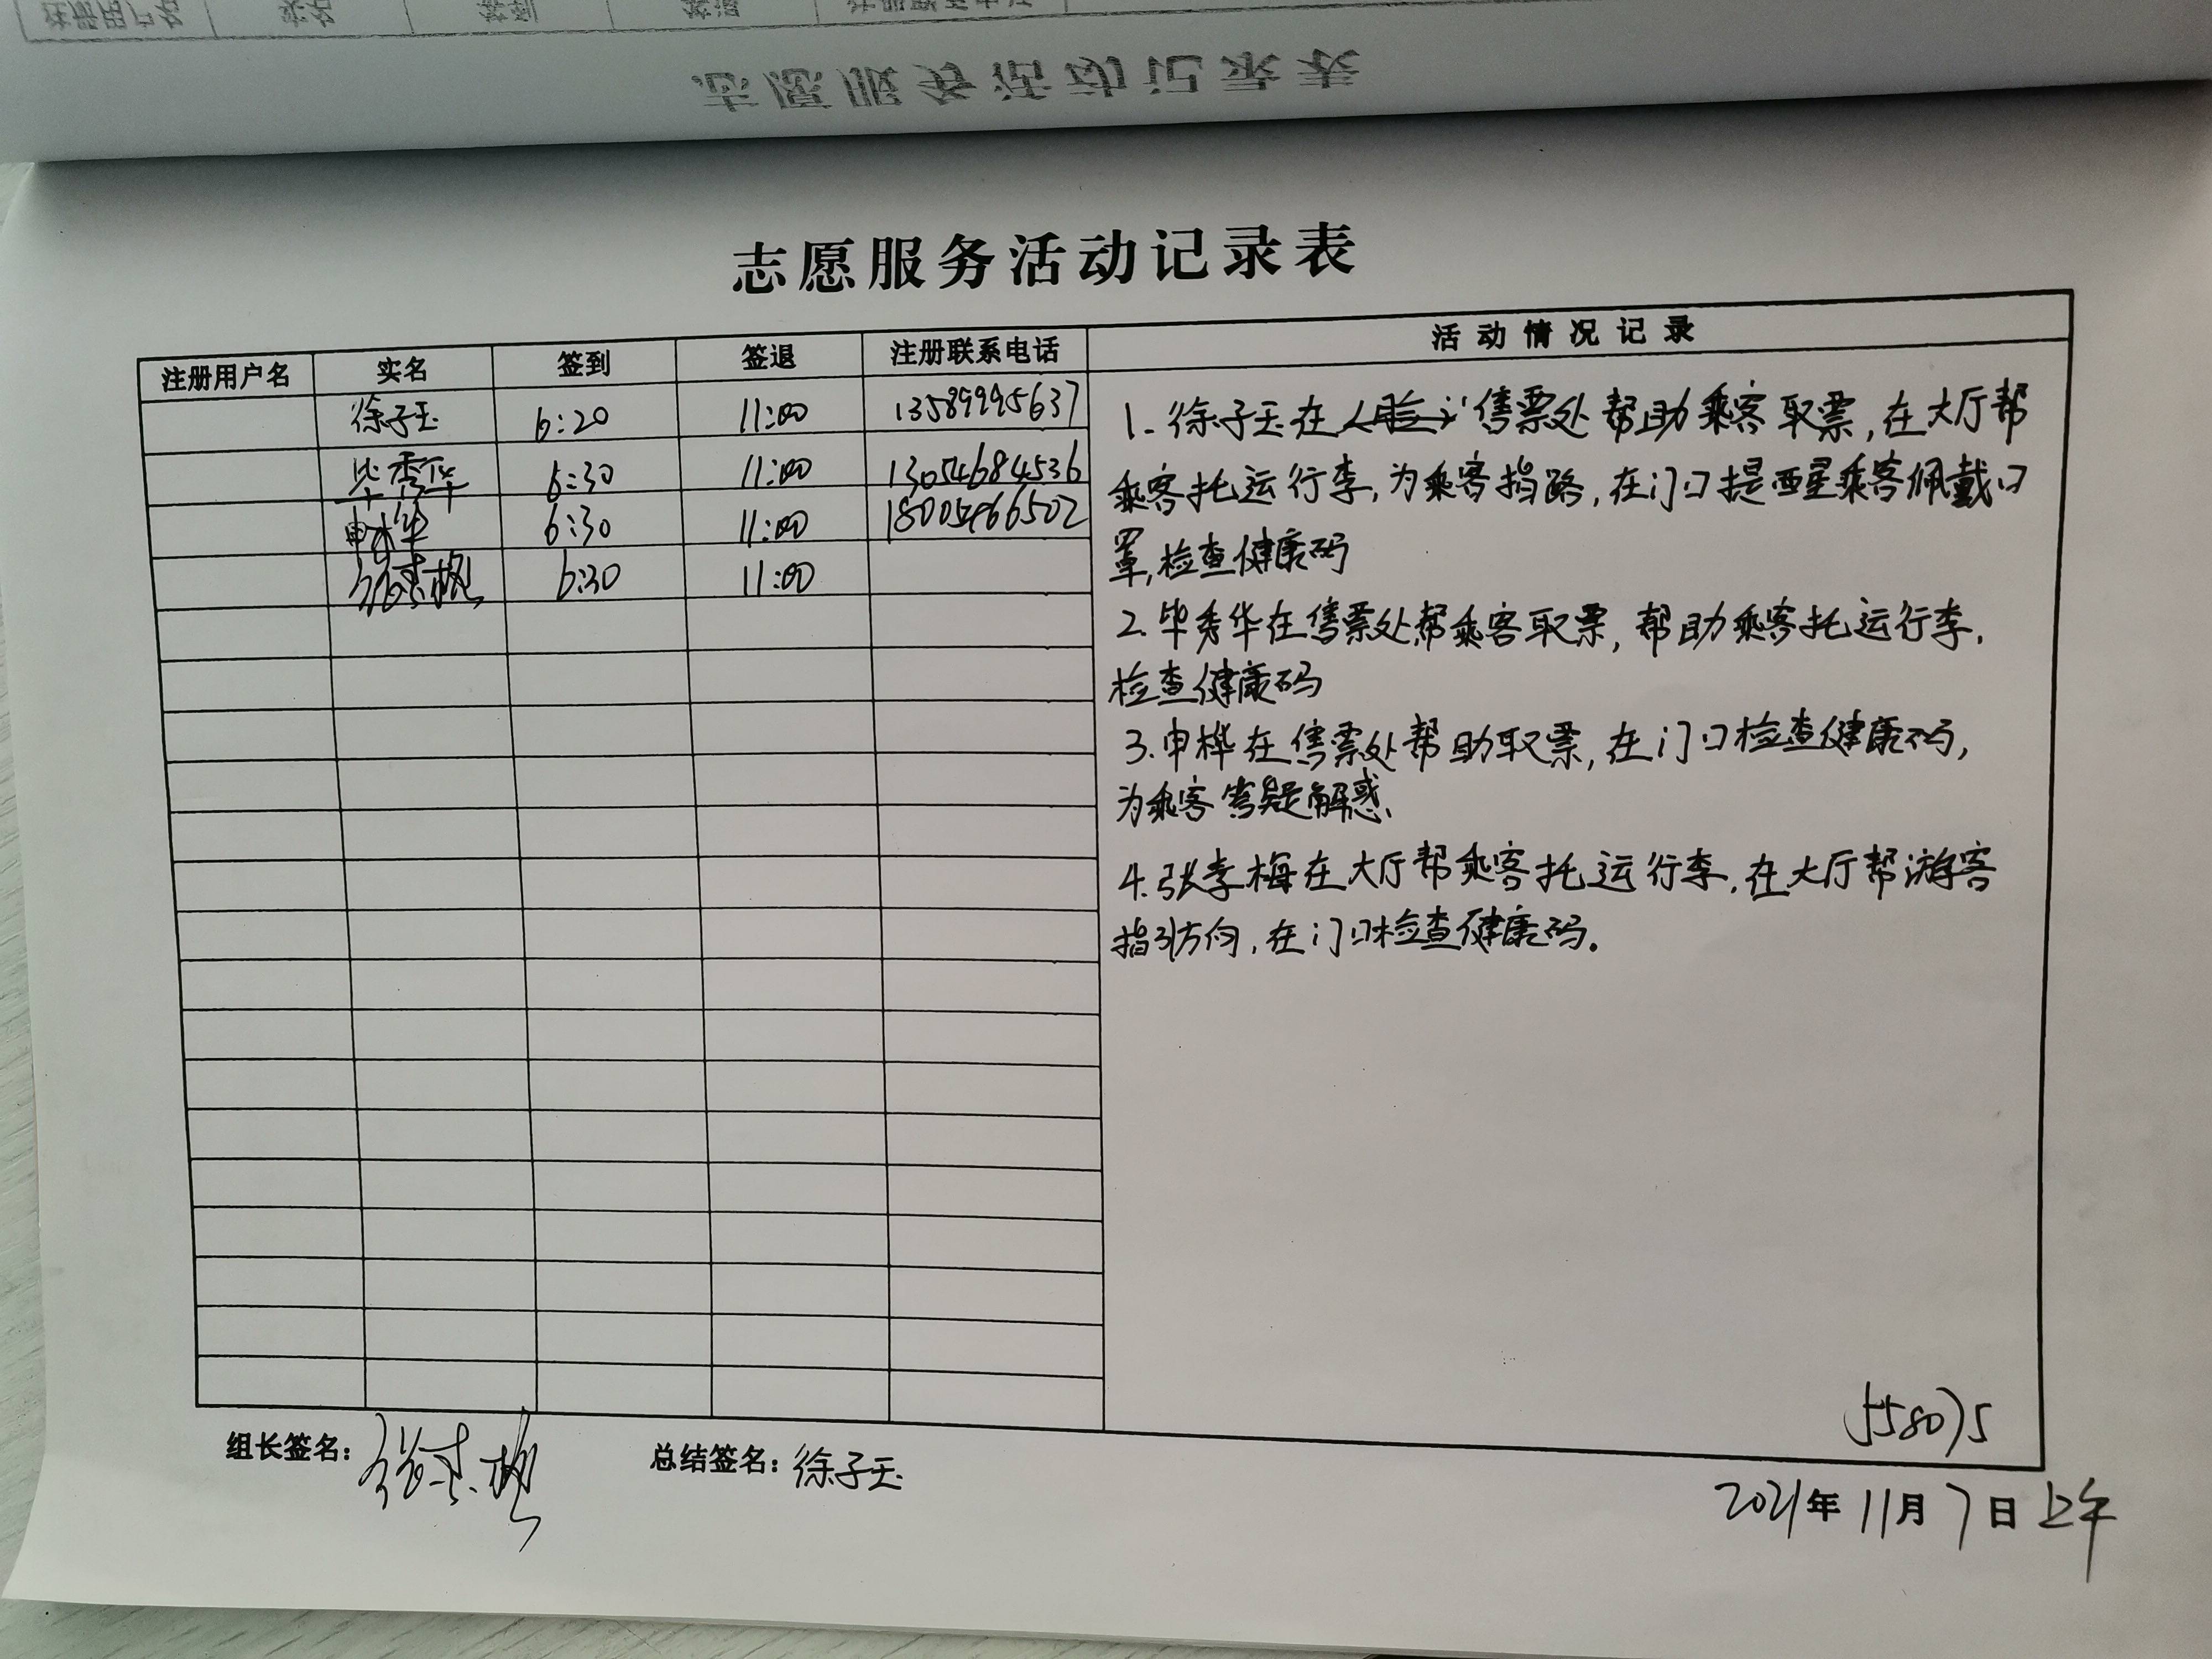 志愿服务活动记录表
志愿服务活动记录表
注册用户名 实名 签到 签退 注册联系电话 活动情况记录
徐子玉 6:20 11:00 13589995637
毕秀华 6:30 11:00 13054684536
申桦 6:30 11:00 18005466502
6:30 11:00
1. 徐子玉在售票处帮助乘客取票,在大厅帮
乘客托运行李,为乘客指路,在门口提醒乘客佩戴口
罩,检查健康码
2.毕秀华在售票处帮乘客取票,帮助乘客托运行李,
检查健康码
3.申桦在售票处帮助取票,在门口检查健康码,
为乘客答疑解惑、
4.张李梅在大厅帮乘客托运行李,在大厅帮游客
指引方向,在门口检查健康码。
组长签名: 总结签名:徐子玉
2021年11月7日上午